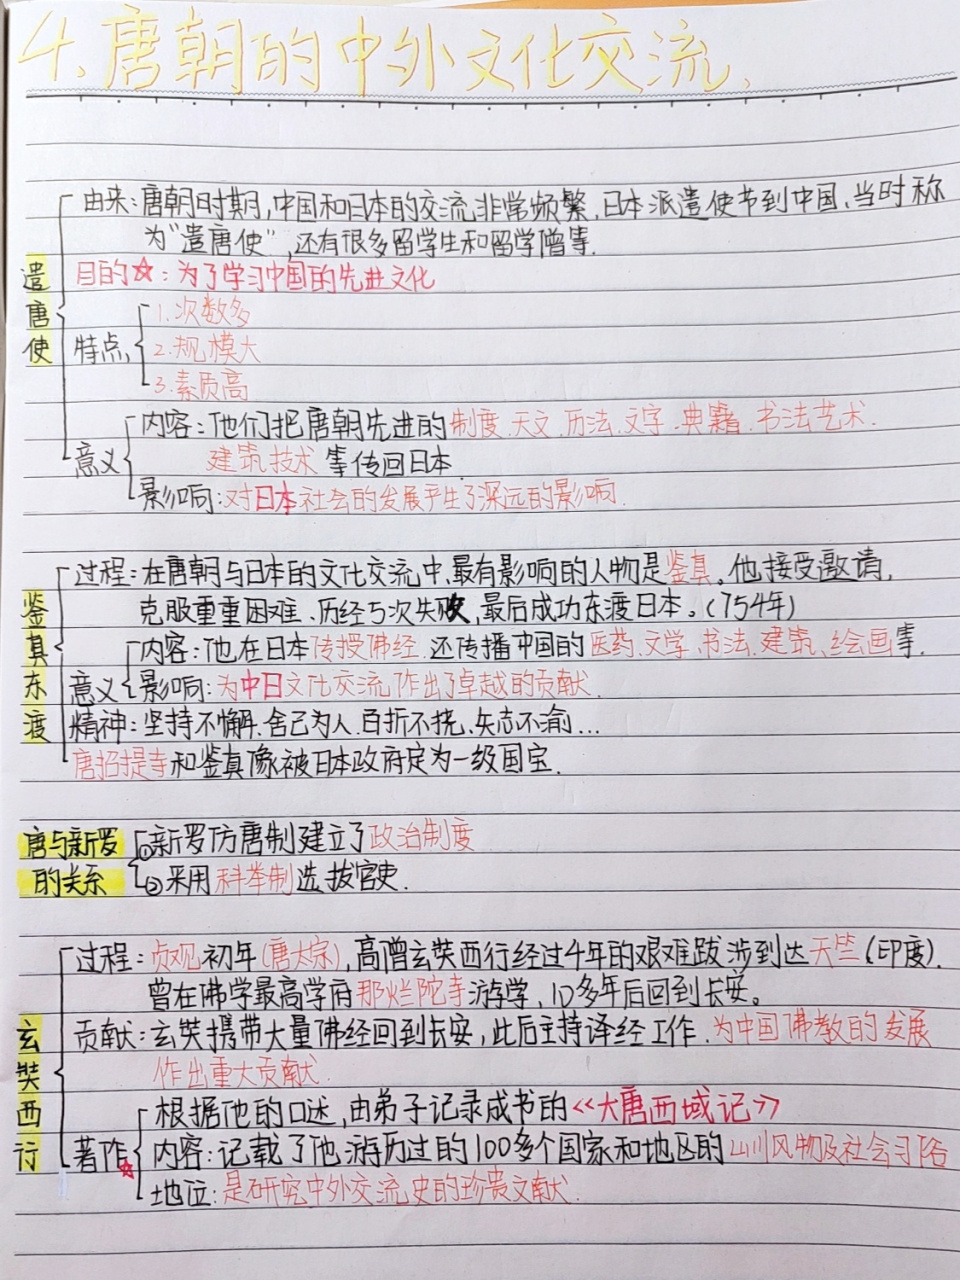 4、唐朝的中外文化交流、
由来:唐朝时期,中国和日本的交流非常频繁,日本派遣使节到中国,当时称
为"遣唐使",还有很多留学生和留学僧等.
遣唐使
目的☆:为了学习中国的先进文化
特点、
1.次数多
2.规模大
3.素质高
意义
内容:他们把唐朝先进的制度.天文.历法.文字.典籍.书法艺术.
建筑技术等传回日本
影响:对日本社会的发展产生了深远的影响.
鉴真东渡
过程:在唐朝与日本的文化交流中,最有影响的人物是鉴真。他接受邀请,
克服重重困难、历经5次失败,最后成功东渡日本。(754年)
意义
内容:他在日本传授佛经.还传播中国的医药.文学.书法.建筑、绘画等.
影响:为中日文化交流作出了卓越的贡献.
精神:坚持不懈.舍己为人.百折不挠、矢志不渝...
唐招提寺和鉴真像被日本政府定为一级国宝.
唐与新罗
的关系
①新罗仿唐制建立了政治制度
②采用科举制选拔官吏.
玄奘西行
过程:贞观初年(唐太宗),高僧玄奘西行经过4年的艰难跋涉到达天竺(印度).
曾在佛学最高学府那烂陀寺游学,10多年后回到长安。
贡献:玄奘携带大量佛经回到长安,此后主持译经工作.为中国佛教的发展
作出重大贡献.
著作☆
根据他的口述,由弟子记录成书的《大唐西域记》
内容:记载了他游历过的100多个国家和地区的山川风物及社会习俗
地位:是研究中外交流史的珍贵文献.